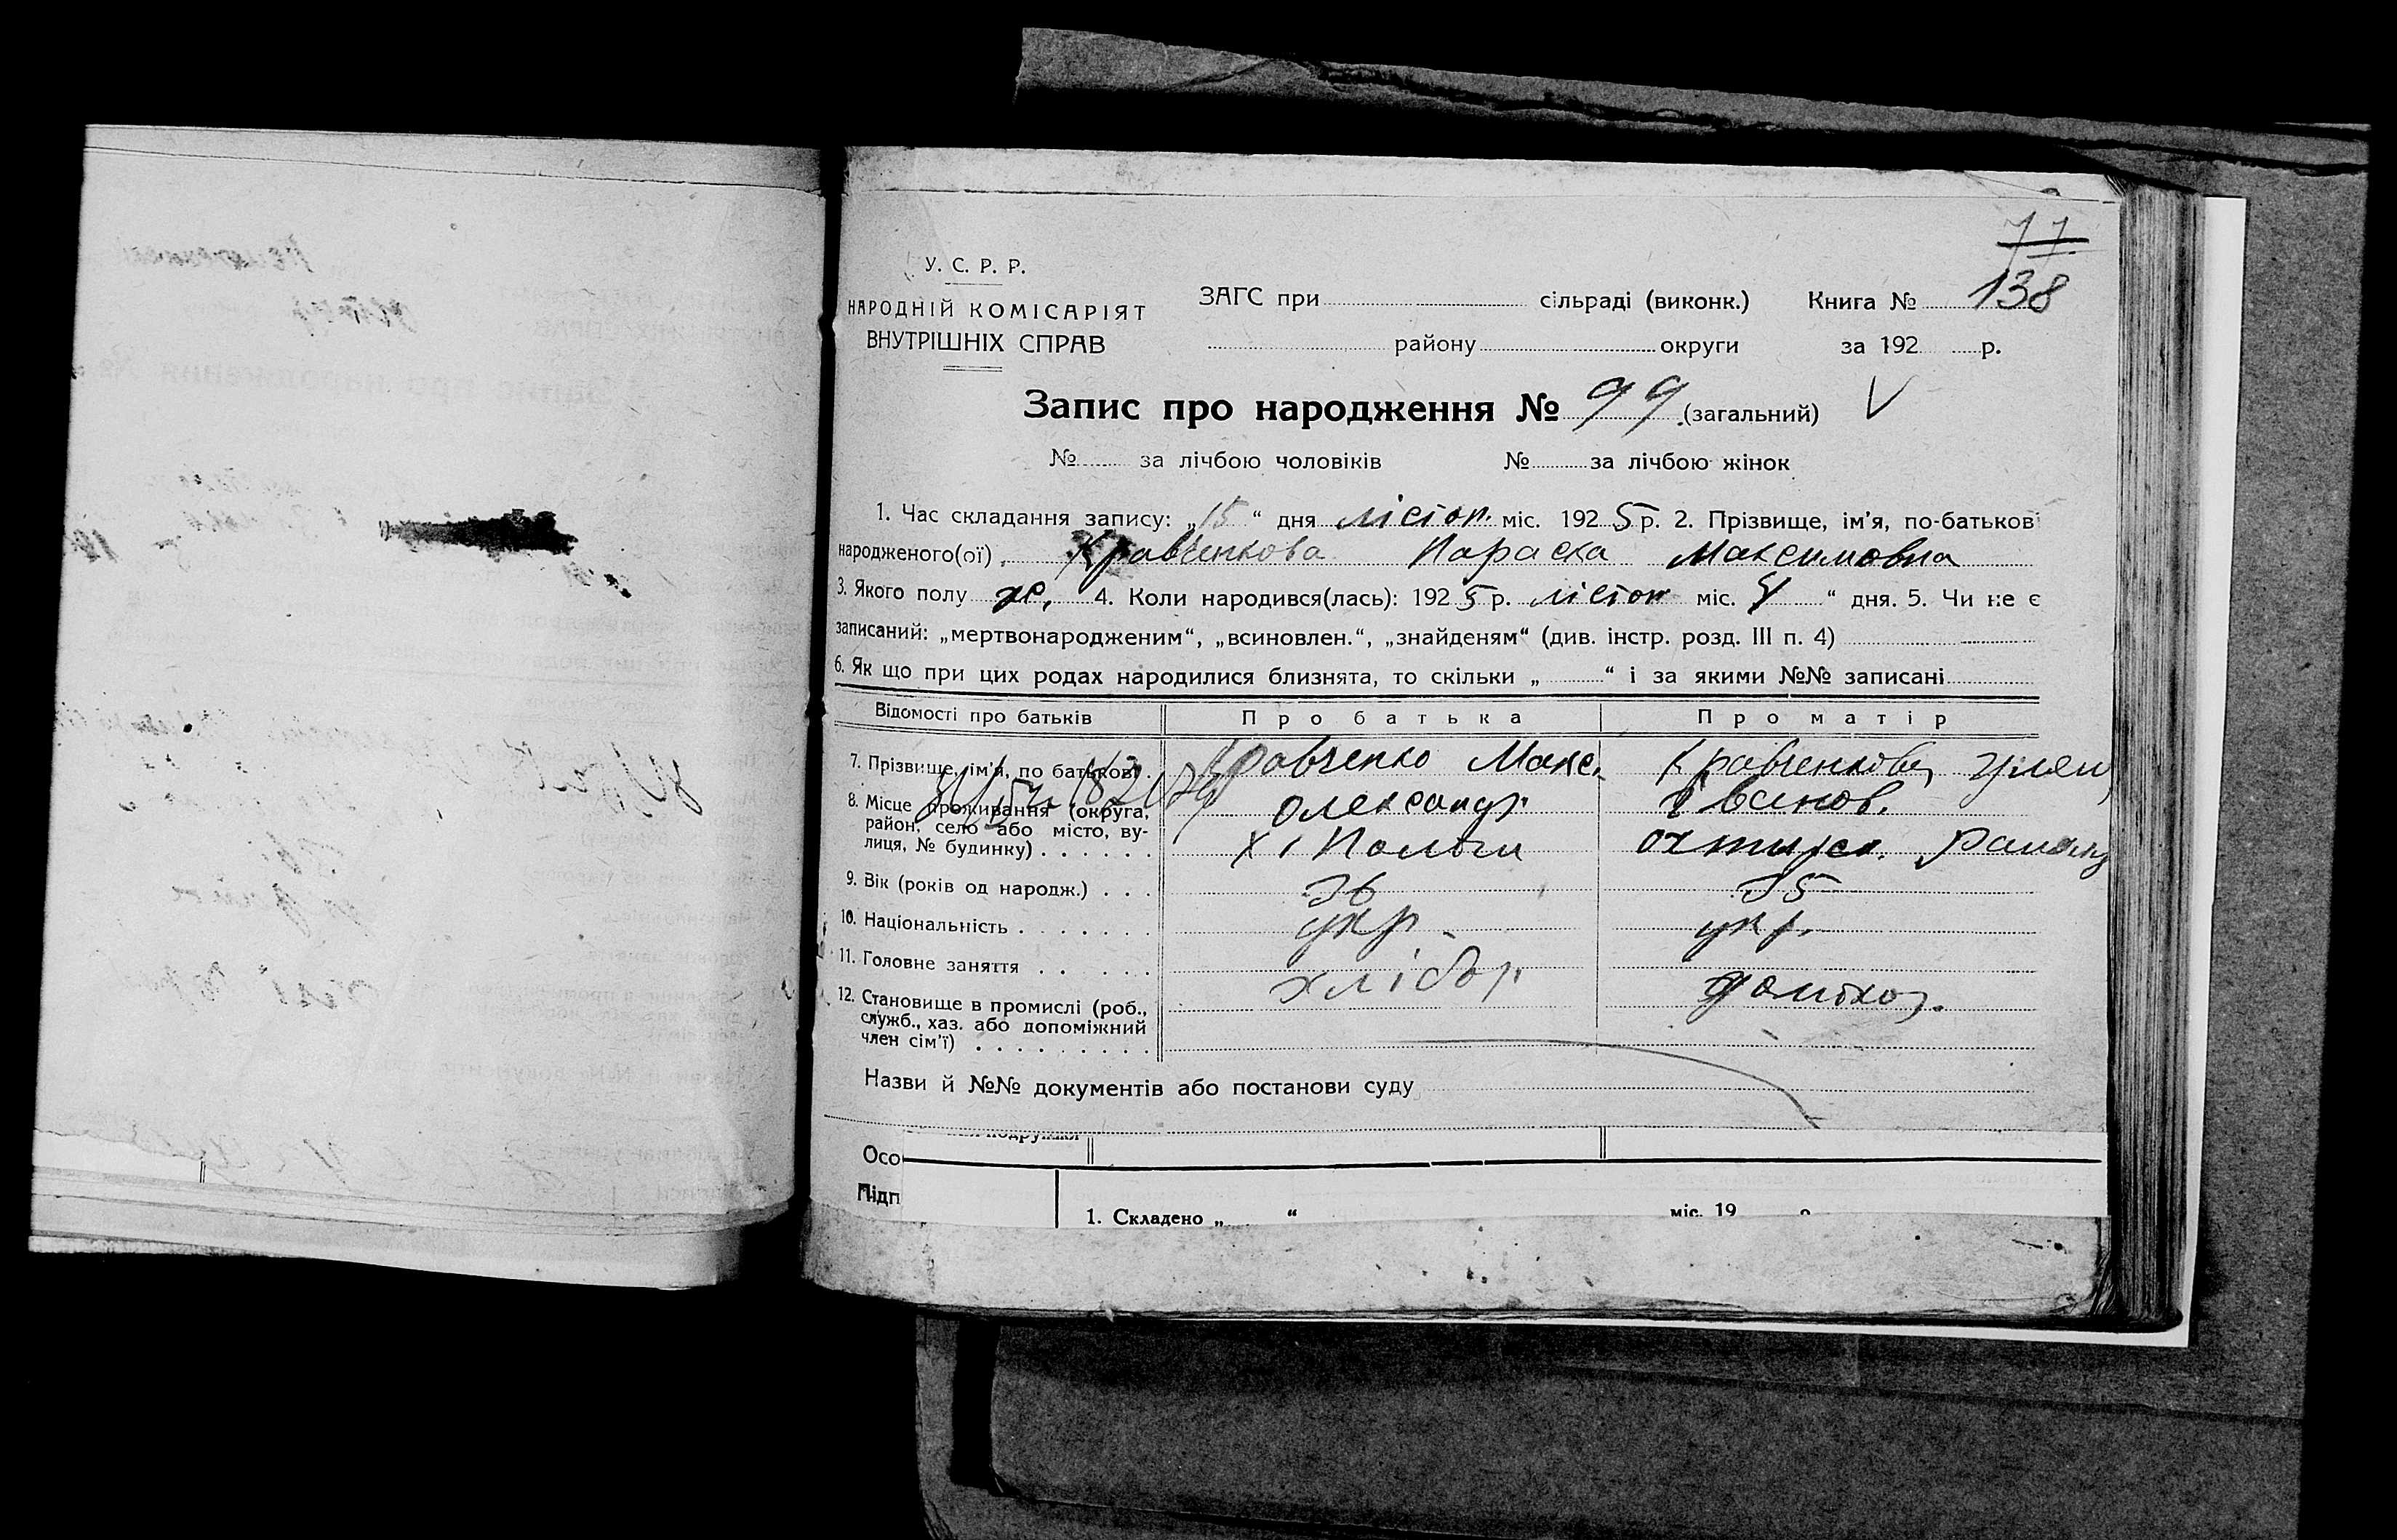 77
У. С. Р. Р.
НАРОДНІЙ КОМІСАРІЯТ
ВНУТРІШНІХ СПРАВ
ЗАГС при сільраді (виконк.) Книга № 138
району округи за 192 р.
Запис про народження № 99 (загальний) V
№ за лічбою чоловіків № за лічбою жінок
1. Час складання запису: „15“ дня лістоп. міс. 1925 р. 2. Прізвище, ім’я, по-батькові
народженого(ої) Кравченкова Параска Максимовна
3. Якого полу ж. 4. Коли народився(лась): 1925 р. лістоп міс. “ дня. 5. Чи не є
записаний: „мертвонародженим“, „всиновлен.“, „знайденям“ (див. інстр. розд. III п. 4)
6. Як що при цих родах народилися близнята, то скільки „ “ і за якими №№ записані
Відомості про батьків Про батька Про матір
7. Прізвище, ім’я, по батькові Кравченко Макс. Кравченкова Улян
8. Місце проживання (округа, Олександр. Іванов.
район, село або місто, ву-
лиця, № будинку) Охтирск.
9. Вік (років од народж.) 36 35
10. Національність укр. укр.
11. Головне заняття хлібор домохоз.
12. Становище в промислі (роб.,
служб., хаз. або допоміжний
член сім’ї)
Назви й №№ документів або постанови суду
Осо
Підп
1. Складено „ “ міс. 19